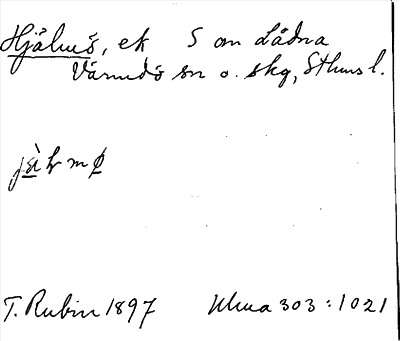 Hjälmö, ek S om Lådna
Värmdö sn o. skg, Sthms l.
T. Rubin 1897 Ulma 303:1021